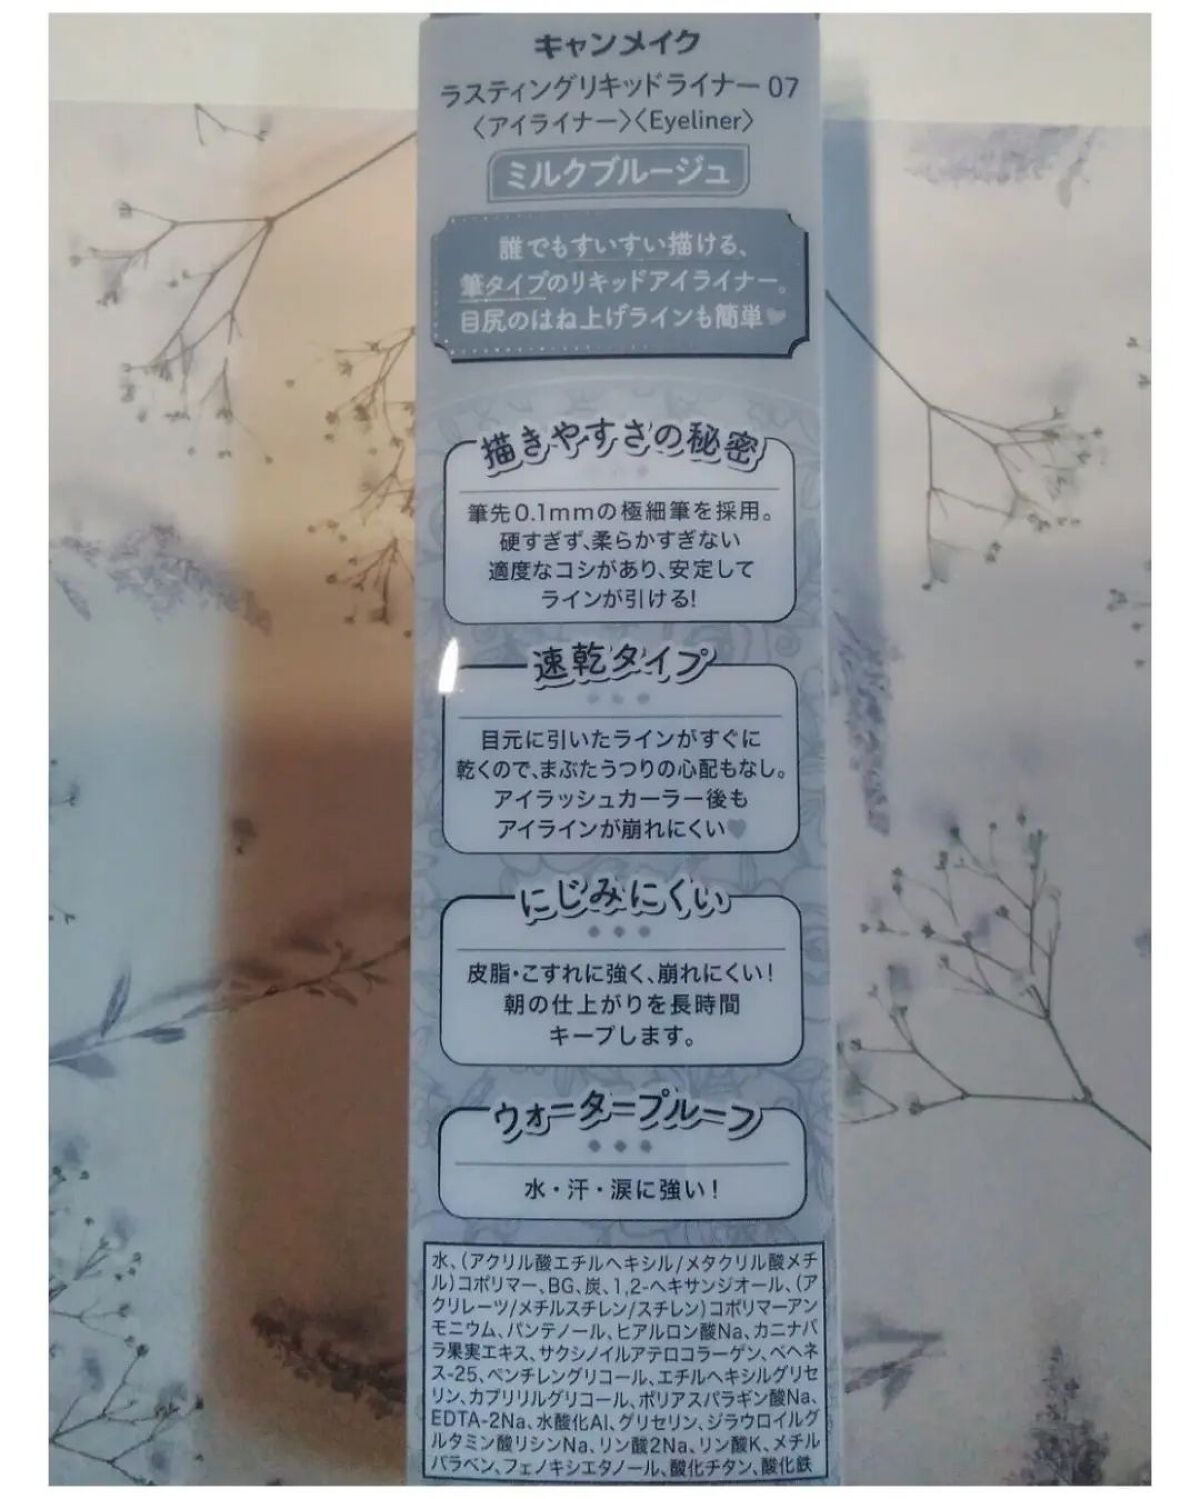 キャンメイク
ラスティングリキッドライナー 07
〈アイライナー〉〈Eyeliner〉
ミルクブルージュ
誰でもすいすい描ける、
筆タイプのリキッドアイライナー。
目尻のはね上げラインも簡単♥
描きやすさの秘密
筆先0.1mmの極細筆を採用。
硬すぎず、柔らかすぎない
適度なコシがあり、安定して
ラインが引ける!
速乾タイプ
目元に引いたラインがすぐに
乾くので、まぶたうつりの心配もなし。
アイラッシュカーラー後も
アイラインが崩れにくい♥
にじみにくい
皮脂・こすれに強く、崩れにくい!
朝の仕上がりを長時間
キープします。
ウォータープルーフ
水・汗・涙に強い!
水、(アクリル酸エチルヘキシル/メタクリル酸メチ
ル)コポリマー、BG、炭、1,2-ヘキサンジオール、(ア
クリレーツ/メチルスチレン/スチレン)コポリマーアン
モニウム、パンテノール、ヒアルロン酸Na、カニナバ
ラ果実エキス、サクシノイルアテロコラーゲン、ベヘネ
ス-25、ペンチレングリコール、エチルヘキシルグリセ
リン、カプリリルグリコール、ポリアスパラギン酸Na、
EDTA-2Na、水酸化Al、グリセリン、ジラウロイルグ
ルタミン酸リシンNa、リン酸2Na、リン酸K、メチル
パラベン、フェノキシエタノール、酸化チタン、酸化鉄